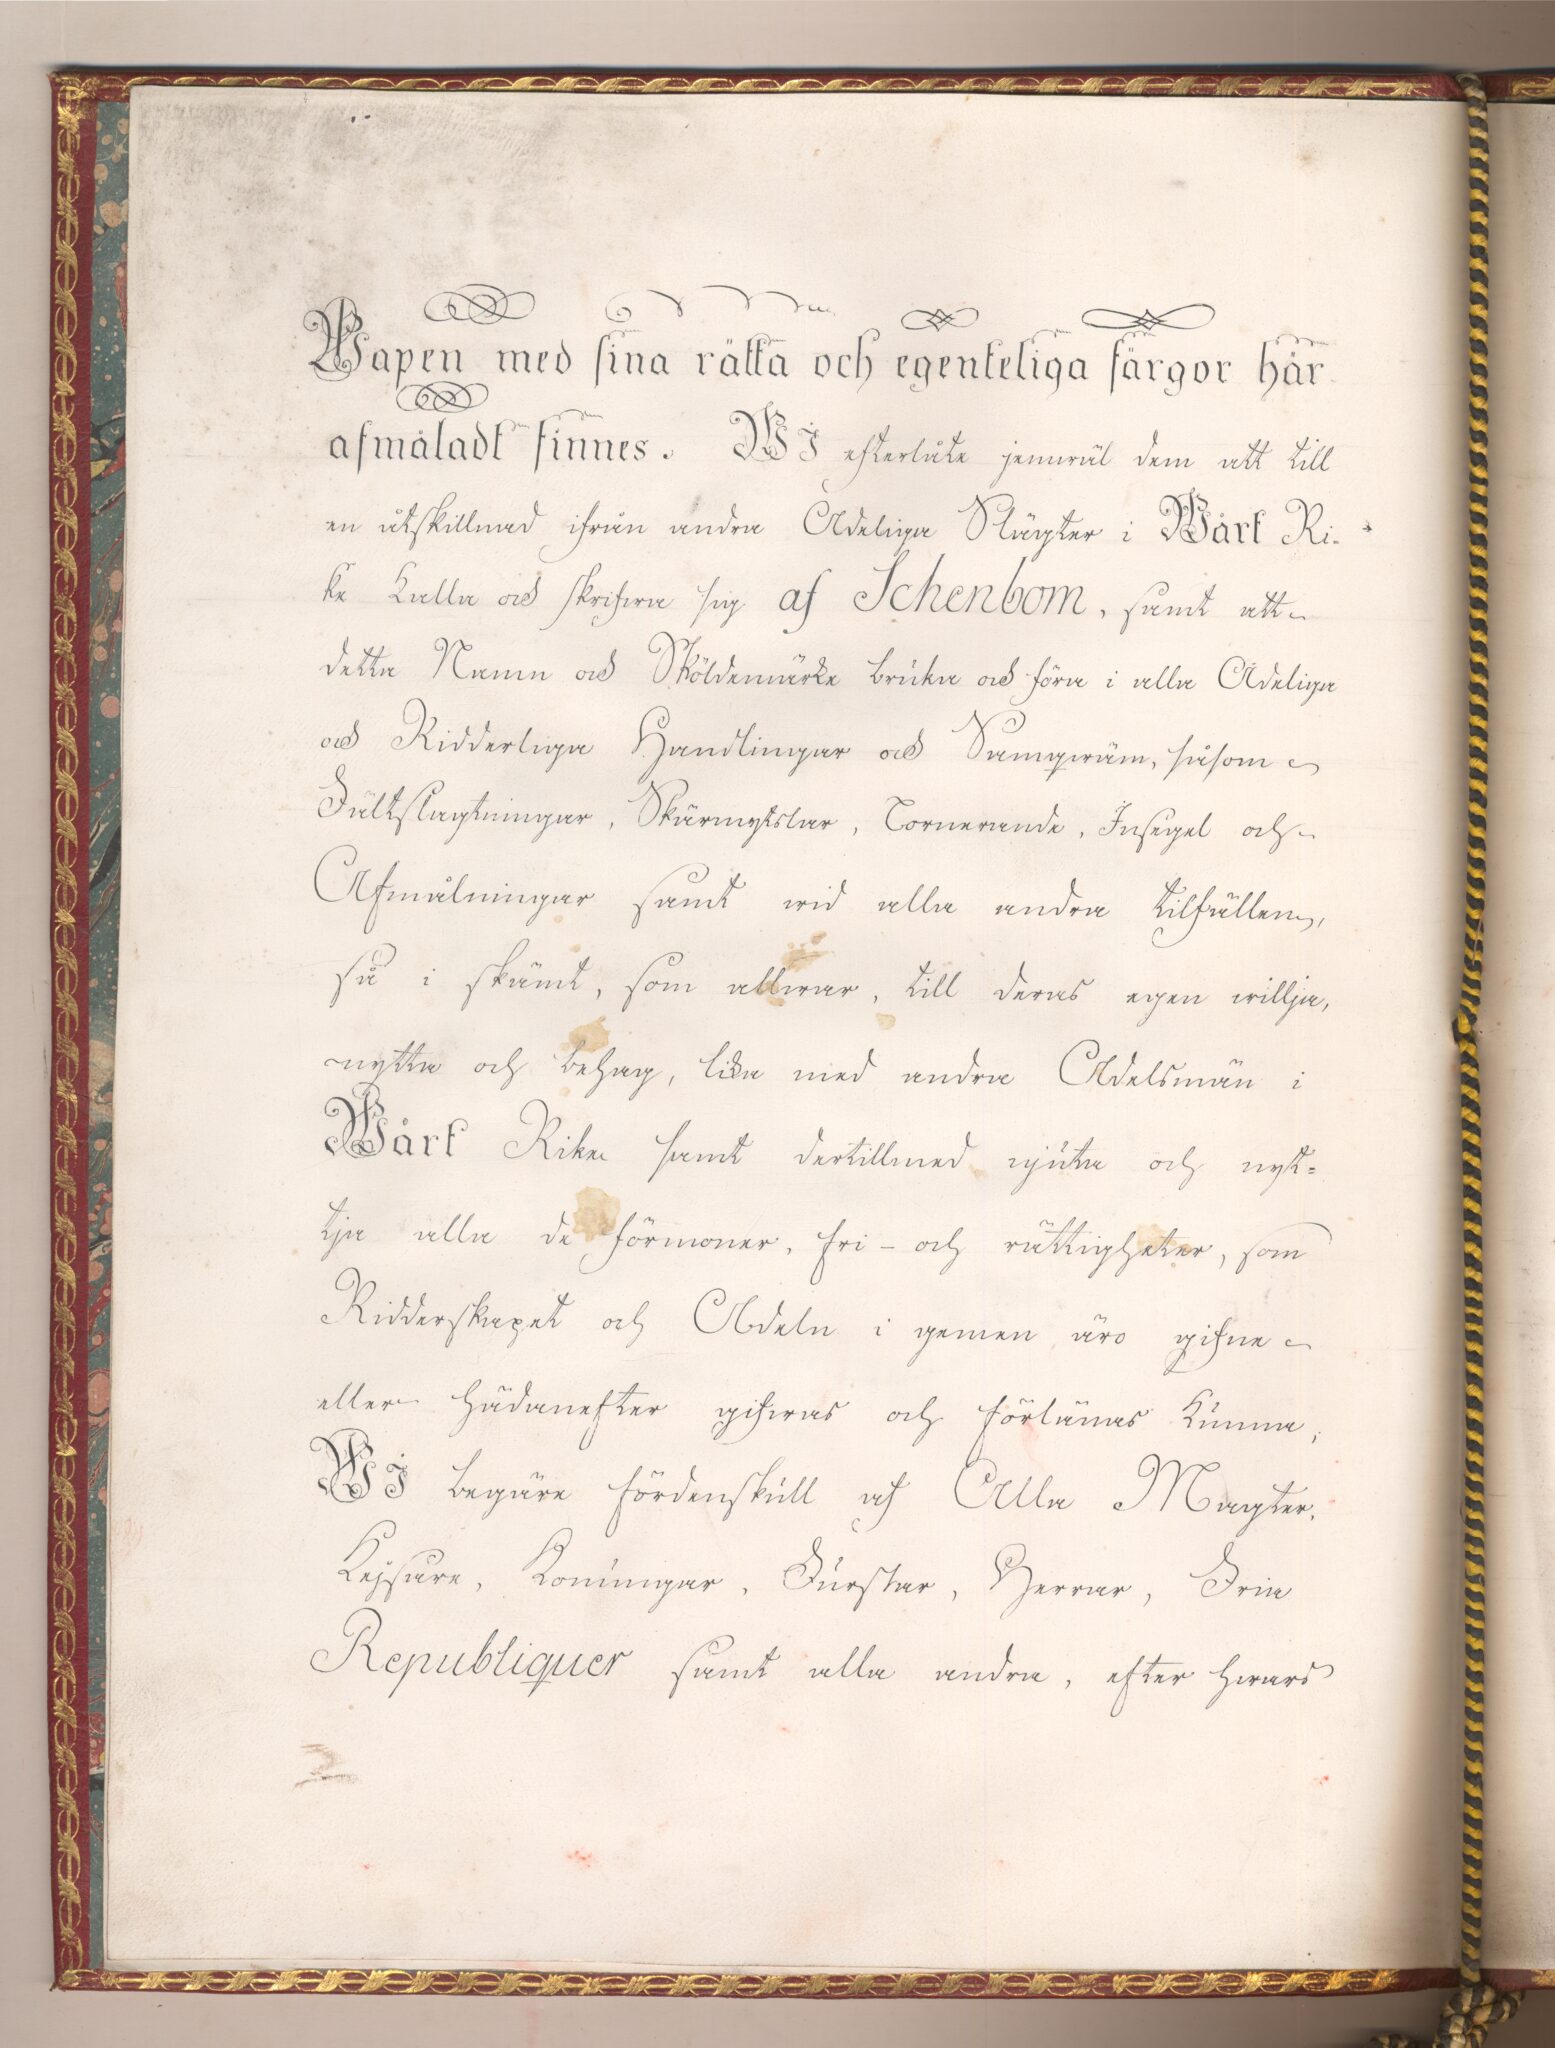 Wapen med sina rätta och egenteliga färgor här
afmåladt finnes. WJ efterlåte jemwäl dem att till
en åtskillnad ifrån andra Adeliga Slägter i Wårt Ri-
ke kalla och skrifwa sig af Schenbom, samt att
detta Namn och Sköldemärke bruka och föra i alla Adeliga
och Ridderliga Handlingar och Samqwäm, såsom
Fältslagtningar, Skärmytslar, Tornerande, Insegel och
Afmålningar samt wid alla andra tilfällen,
så i skämt, som allwar, till deras egen willja,
nytta och behag, lika med andra Adelsmän i
Wårt Rike samt dertillmed njuta och nyt-
tja alla de förmoner, fri- och rättigheter, som
Ridderskapet och Adeln i gemen äro gifne
eller hädanefter gifwas och förlänas kunna,
WJ begäre fördenskull af Alla Magter,
Kejsare, Konungar, Furstar, Herrar, Fria
Republiquer samt alla andra, efter hwars